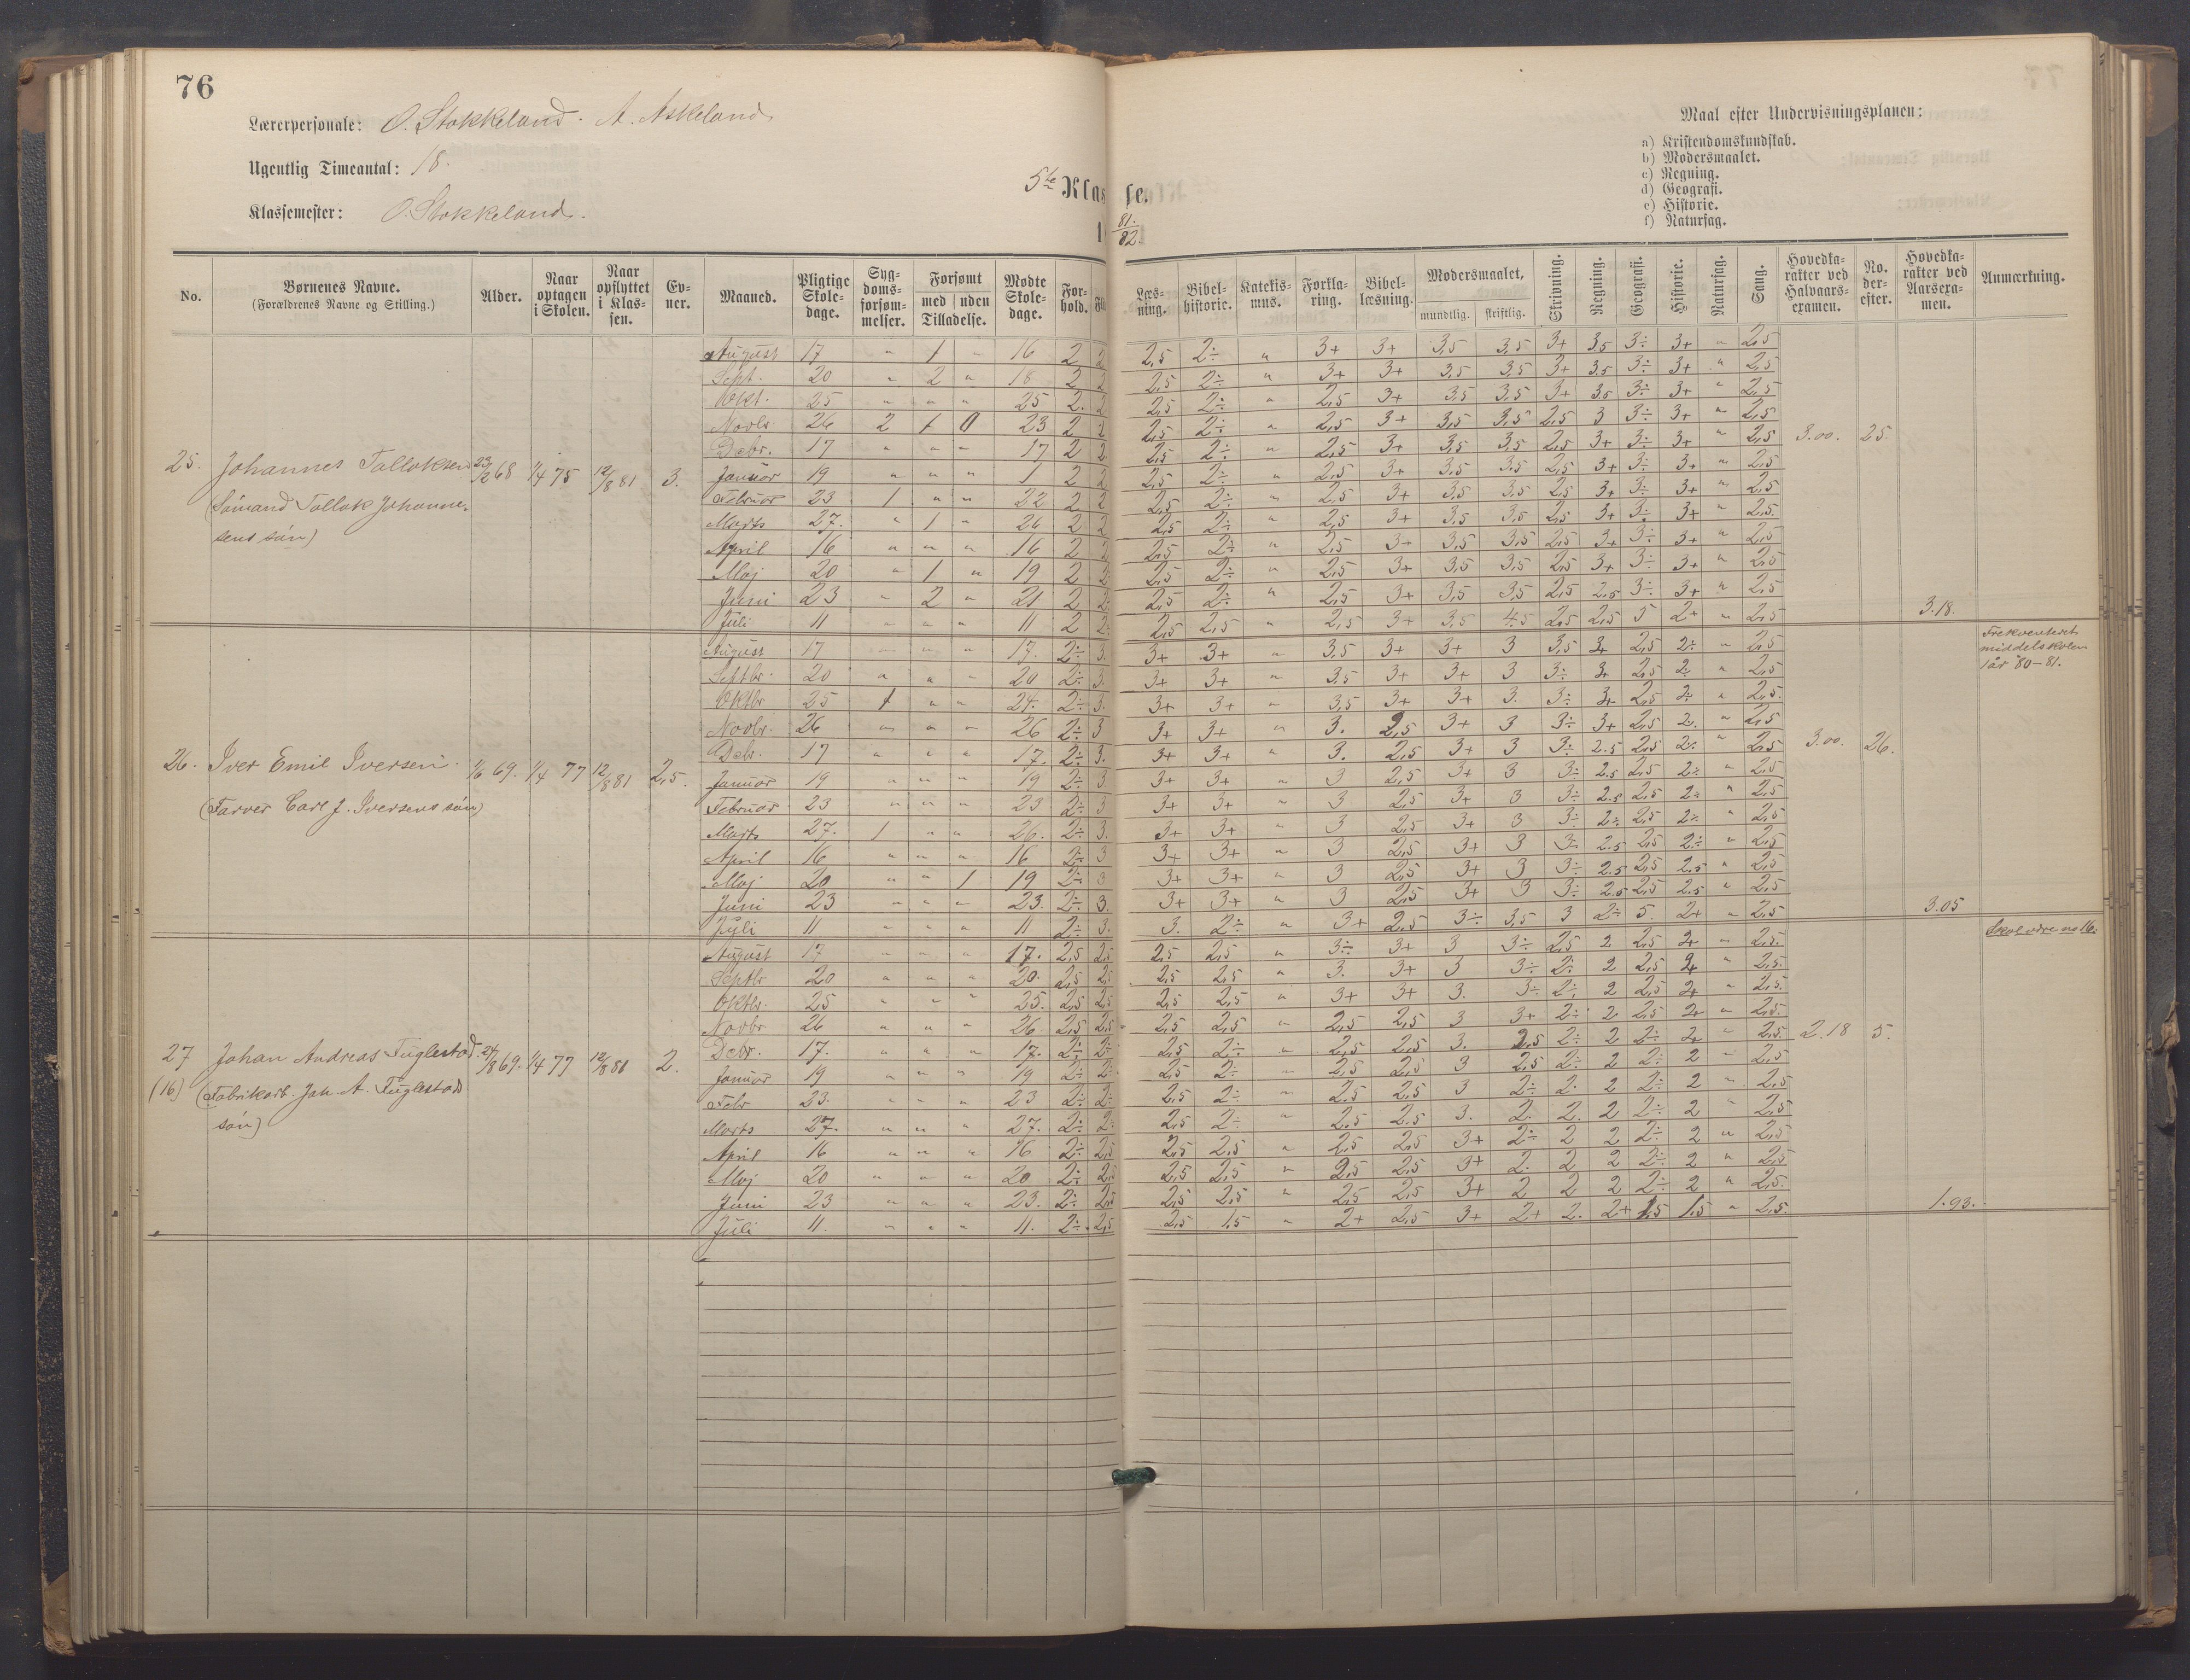 76
Lærerpersonale: O. Stokkeland. A. Askeland.
Ugentlig Timeantal: 18.
Klassemester: O. Stokkeland.
5te Klasse.
81/82.
Maal efter Undervisningsplanen:
a) Kristendomskundskab.
b) Modersmaalet.
c) Regning.
d) Geografi.
e) Historie.
f) Naturfag.
No. Børnenes Navne. (Forældrenes Navne og Stilling.) Alder. Naar optagen i Skolen. Naar opflyttet i Klassen. Evner. Maaned. Pligtige Skoledage. Sygdomsforsømmelser. Forsømt med uden Tilladelse. Mødte Skoledage. Forhold. Læsning. Bibelhistorie. Katekismus. Forklaring. Bibellæsning. Modersmaalet, mundtlig. skriftlig. Skrivning. Regning. Geografi. Historie. Naturfag. Sang. Hovedkarakter ved Halvaarsexamen. No. derefter. Hovedkarakter ved Aarsexamen. Anmærkning.
25. Johannes Tollaksen 23/2 68 1/4 75 12/8 81 3.
(Sömand Tollak Johannesens sön)
August 17 " 1 " 16 2 2 2,5 2÷ " 3+ 3+ 3,5 3,5 3+ 3,5 3÷ 3+ " 2,5
Sept. 20 " 2 " 18 2 2 2,5 2÷ " 3+ 3+ 3,5 3,5 3+ 3,5 3÷ 3+ " 2,5
Okt. 25 " " " 25 2. 2 2,5 2÷ " 2,5 3+ 3,5 3,5 3+ 3,5 3÷ 3+ " 2,5
Novbr. 26 2 1 0 23 2 2 2,5 2÷ " 2,5 3+ 3,5 3,5 2,5 3 3÷ 3+ " 2,5
Decbr. 17 " " " 17 2 2 2,5 2÷ " 2,5 3+ 3,5 3,5 2,5 3+ 3÷ 3+ " 2,5 3.00. 25.
Januar 19 " " " 1 2 2 2,5 2÷ " 2,5 3+ 3,5 3,5 2,5 3+ 3÷ 3+ " 2,5
Februar 23 1 " " 22 2 2 2,5 2÷ " 2,5 3+ 3,5 3,5 2,5 3+ 3÷ 3+ " 2,5
Marts 27. " 1 " 26 2 2 2,5 2÷ " 2,5 3+ 3,5 3,5 2,5 3+ 3÷ 3+ " 2,5.
April 16 " " " 16 2 2 2,5 2÷ " 2,5 3+ 3,5 3,5 2,5 3+ 3÷ 3+ " 2,5
Maj 20 " 1 " 19 2 2 2,5 2÷ " 2,5 3+ 3,5 3,5 2,5 3+ 3÷ 3+ " 2,5
Juni 23 " 2 " 21 2 2 2,5 2÷ " 2,5 3+ 3,5 3,5 2,5 2,5 3÷ 3+ " 2,5
Juli 11 " " " 11 2 2÷ 2,5 2,5 " 2,5 3+ 3,5 4,5 2,5 2,5 5 2+ " 2,5 3.18.
26. Iver Emil Iversen. 1/6 69. 1/4 77 12/8 81 2,5.
(Farver Carl J. Iversens sön)
Frekventeret middelskolen 1 år 80-81.
August 17 " " " 17. 2÷ 3. 3+ 3+ " 3,5 3+ 3+ 3 3,5 3+ 2,5 2÷ " 2,5
Septbr. 20 " " " 20 2÷ 3. 3+ 3+ " 3,5 3+ 3+ 3 3÷ 3+ 2,5 2÷ " 2,5
Oktbr 25 1 " " 24. 2÷ 3. 3+ 3+ " 3,5 3+ 3+ 3. 3÷ 3+ 2,5 2÷ " 2,5.
Novbr. 26 " " " 26 2÷ 3 3+ 3+ " 3. 2,5 3+ 3 3÷ 3+ 2,5 2÷ " 2,5
Debr. 17 " " " 17. 2÷ 3. 3+ 3+ " 3. 2,5 3+ 3 3÷ 2.5 2,5 2÷ " 2,5 3.00. 26.
Januar 19 " " " 19 2÷ 3 3+ 3+ " 3 2,5 3+ 3 3÷ 2.5 2,5 2÷ " 2,5
Februar 23 " " " 23 2÷ 3 3+ 3+ " 3 2,5 3+ 3 3÷ 2.5 2,5 2÷ " 2,5
Marts 27. 1 " " 26. 2÷ 3. 3+ 3+ " 3 2,5 3+ 3 3÷ 2÷ 2,5 2÷ " 2,5
April 16 " " " 16 2÷ 3 3+ 3+ " 3 2,5 3+ 3 3÷ 2.5 2,5 2÷ " 2,5
Maj 20 " " 1 19 2÷ 3 3+ 3+ " 3 2,5 3+ 3 3÷ 2.5 2,5 2.5 " 2,5
Juni 23 " " " 23. 2÷ 3. 3+ 3+ " 3 2,5 3+ 3 3÷ 2.5 2,5 2.5 " 2,5
Juli 11 " " " 11 2÷ 3. 3. 2÷ " 3+ 2,5 3÷ 3,5 3 2÷ 5. 2+ " 2,5 3.05
27 (16) Johan Andreas Fuglestad. 24/8 69. 1/4 77 12/8 80 2.
(Fabrikarb. Joh. A. Fuglestad sön)
August 17 " " " 17. 2,5 2,5 2,5 2,5 " 3÷ 3+ 3 3÷ 2,5 2 2,5 2+ " 2,5.
Septbr 20 " " " 20. 2,5 2,5 2,5 2,5 " 3. 3+ 3 3÷ 2÷ 2 2,5 2+ " 2,5.
Oktbr. 25 " " " 25. 2,5 2,5 2,5 2,5 " 3+ 3+ 3. 3÷ 2÷ 2 2,5 2+ " 2,5.
Novbr 26 " " " 26 2,5 2,5 2,5 2,5 " 2,5 2,5 3 3+ 2÷ 2 2,5 2+ " 2,5.
Debr. 17. " " " 17. 2÷ 2÷ 2,5 2÷ " 2,5 2,5 3. 2,5 2÷ 2 2÷ 2+ " 2,5. 2.18 5.
Januar 19 " " " 19 2÷ 2÷ 2,5 2÷ " 2,5 2,5 3 2,5 2÷ 2 2÷ 2 " 2,5
Febr 23. " " " 23 2÷ 2÷ 2,5 2÷ " 2.5 2,5 3 2÷ 2÷ 2 2÷ 2 " 2,5
Marts 27. " " " 27. 2÷ 2÷ 2,5 2÷ " 2,5 2.5 3. 2. 2. 2 2÷ 2 " 2,5
April 16 " " " 16 2÷ 2,5 2,5 2,5 " 2,5 2,5 3+ 2÷ 2 2 2÷ 2 " 2,5
Maj 20 " " " 20 2÷ 2,5 2,5 2,5 " 2,5 2,5 3+ 2. 2 2 2÷ 2 " 2,5
Juni 23 " " " 23. 2÷ 2,5 2,5 2,5 " 2,5 2,5 3+ 2 2 2 2÷ 2 " 2,5.
Juli 11. " " " 11. 2÷ 2,5 2,5 1,5 " 2+ 2,5 3+ 2+ 2. 2+ 1,5 1,5 " 2,5. 1.93.